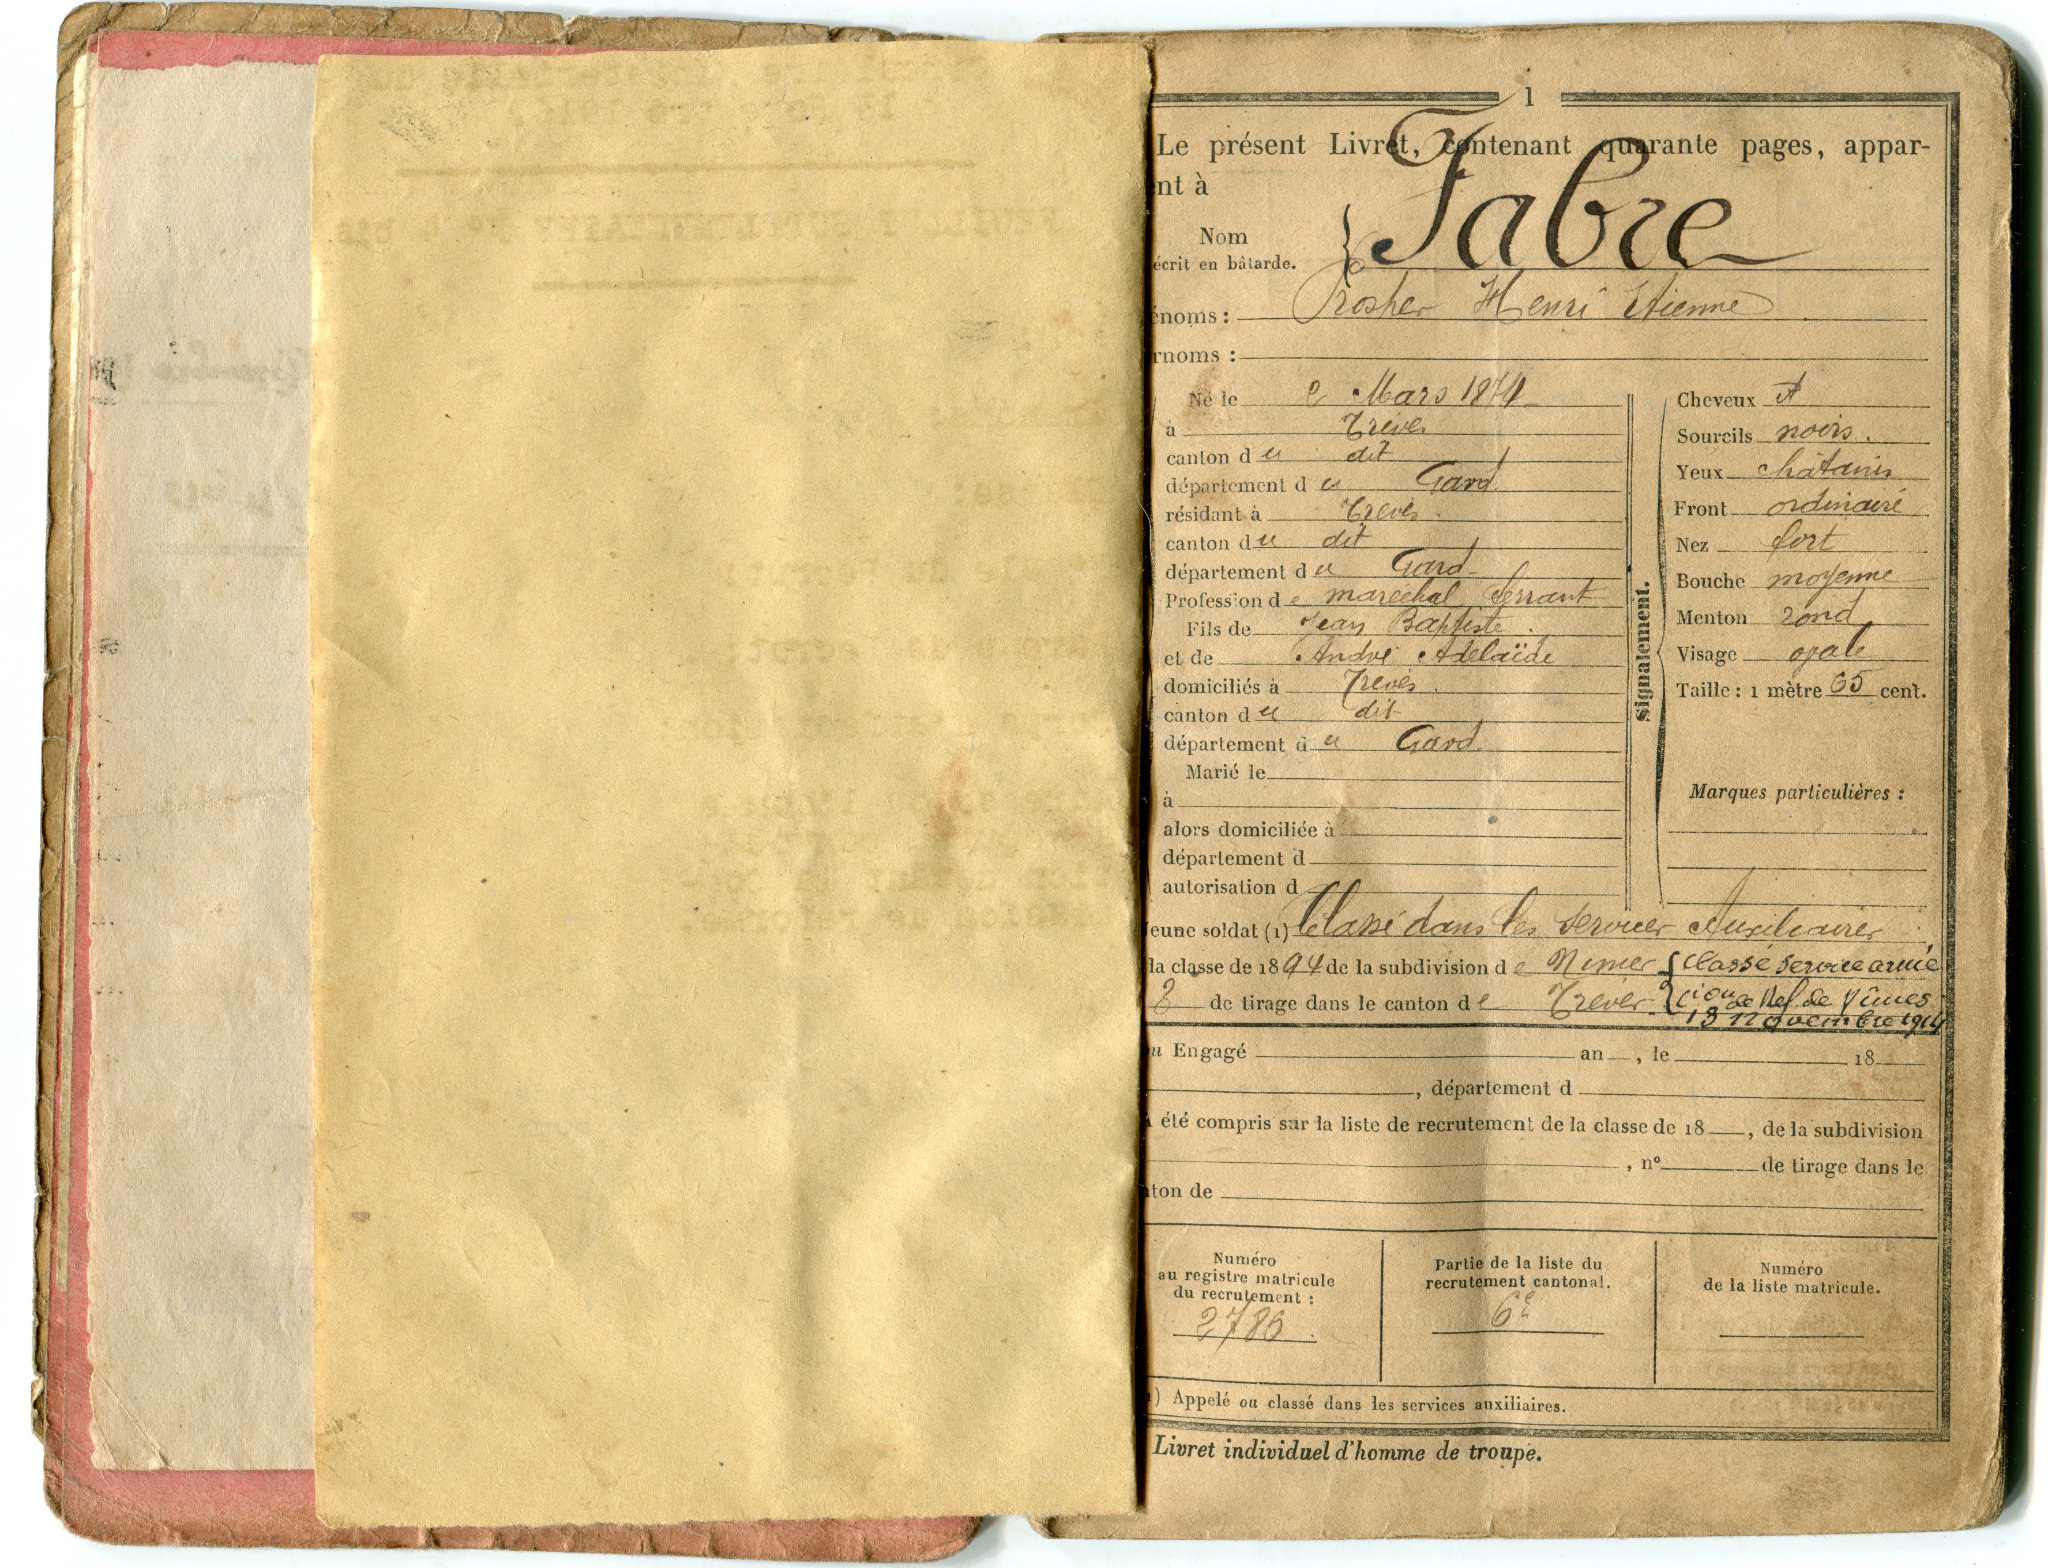 1
Le présent Livret, contenant quarante pages, appar-
ent à
Nom
écrit en bâtarde.
Fabre
énoms : Prosper Henri Etienne
rnoms :
Né le 2 Mars 1874
à Trèves
canton du dit
département du Gard
résidant à Trèves
canton du dit
département du Gard
Profession de maréchal ferrant
Fils de Jean Baptiste
et de André Adélaïde
domiciliés à Trèves
canton du dit
département du Gard
Marié le
à
alors domiciliée à
département d
autorisation d
Signalement.
Cheveux et
Sourcils noirs.
Yeux châtains
Front ordinaire
Nez fort
Bouche moyenne
Menton rond
Visage ovale
Taille : 1 mètre 65 cent.
Marques particulières :
Jeune soldat (1) Classé dans les services Auxiliaires
la classe de 1894 de la subdivision de Nimes { Classé service armé
2 de tirage dans le canton de Trèves { cion de Réf. de Nîmes
13 novembre 1914
ou Engagé an , le 18
, département d
A été compris sur la liste de recrutement de la classe de 18 , de la subdivision
, n° de tirage dans le
nton de
Numéro
au registre matricule
du recrutement :
2786
Partie de la liste du
recrutement cantonal.
6e
Numéro
de la liste matricule.
1) Appelé ou classé dans les services auxiliaires.
Livret individuel d'homme de troupe.